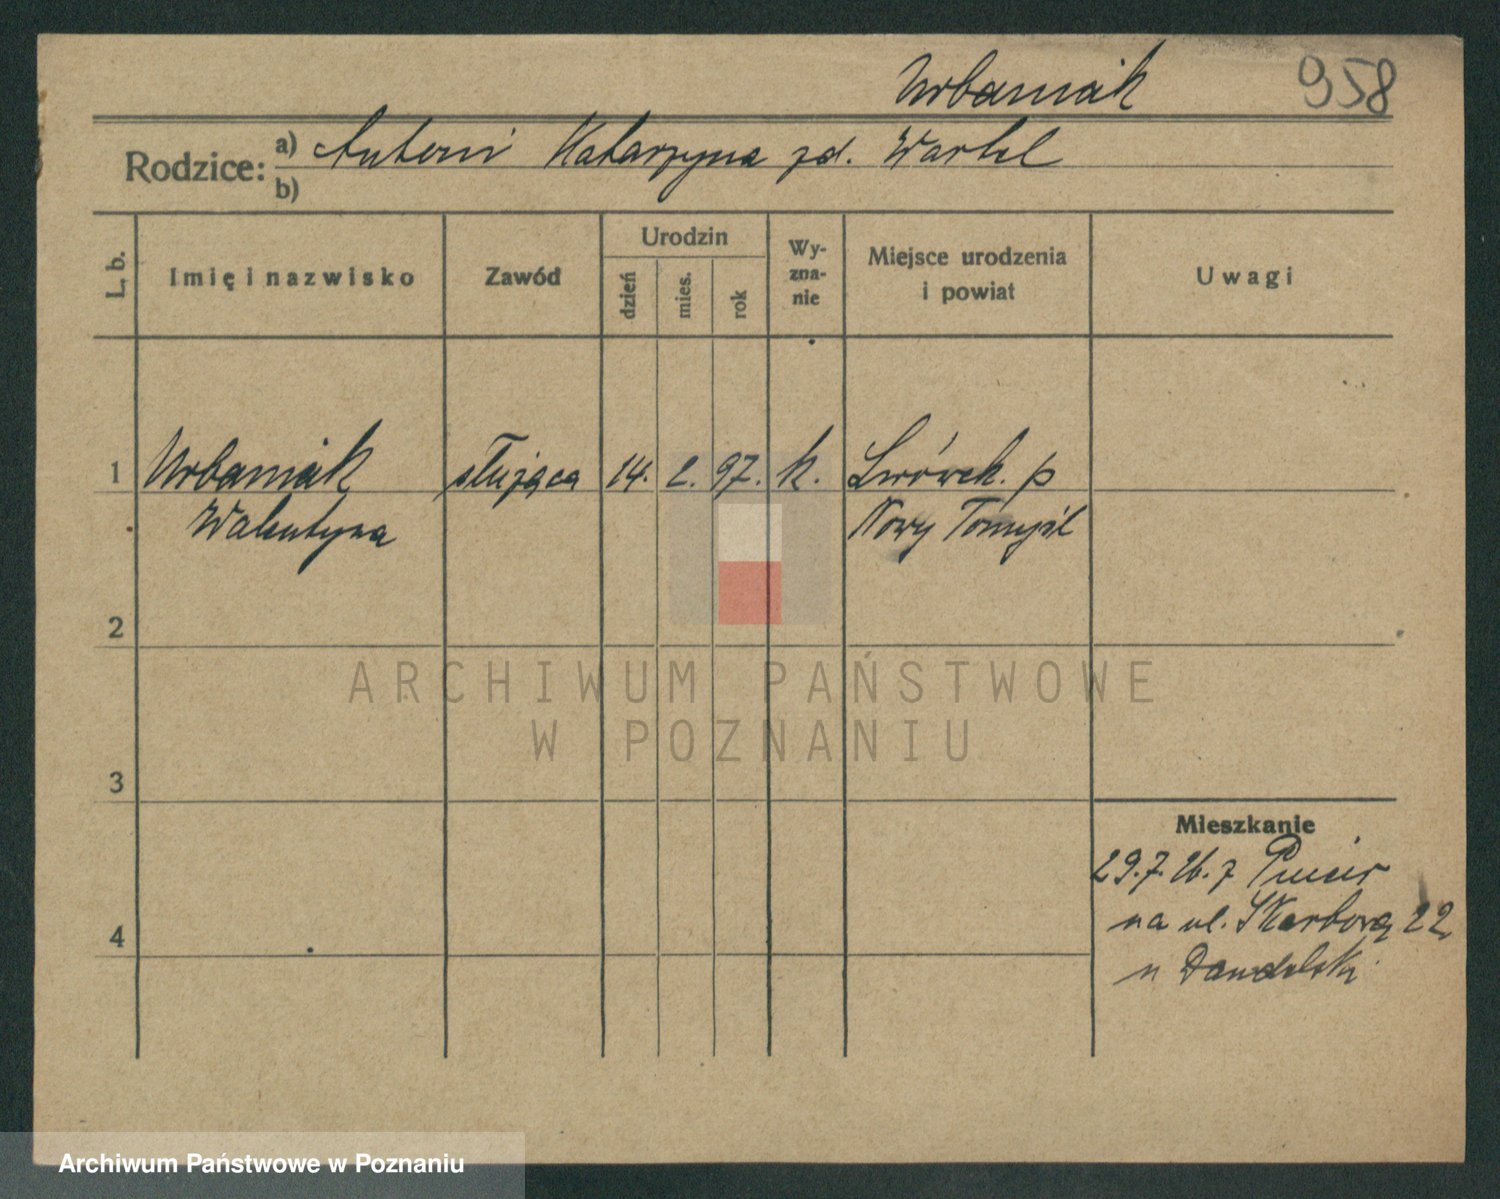 Urbaniak 958
Rodzice: a) Antoni Katarzyna zd. Wartel
b)
L. b. Imię i nazwisko Zawód Urodzin dzień mies. rok Wyzna-nie Miejsce urodzenia i powiat Uwagi
1 Urbaniak służąca 14. 2. 97. k. Lwówek. p
Walentyna Nowy Tomyśl
2
3
Mieszkanie
29.7.26. z
na ul. Skarbową 22
4
n Dandelski
ARCHIWUM PAŃSTWOWE
W POZNANIU
Archiwum Państwowe w Poznaniu